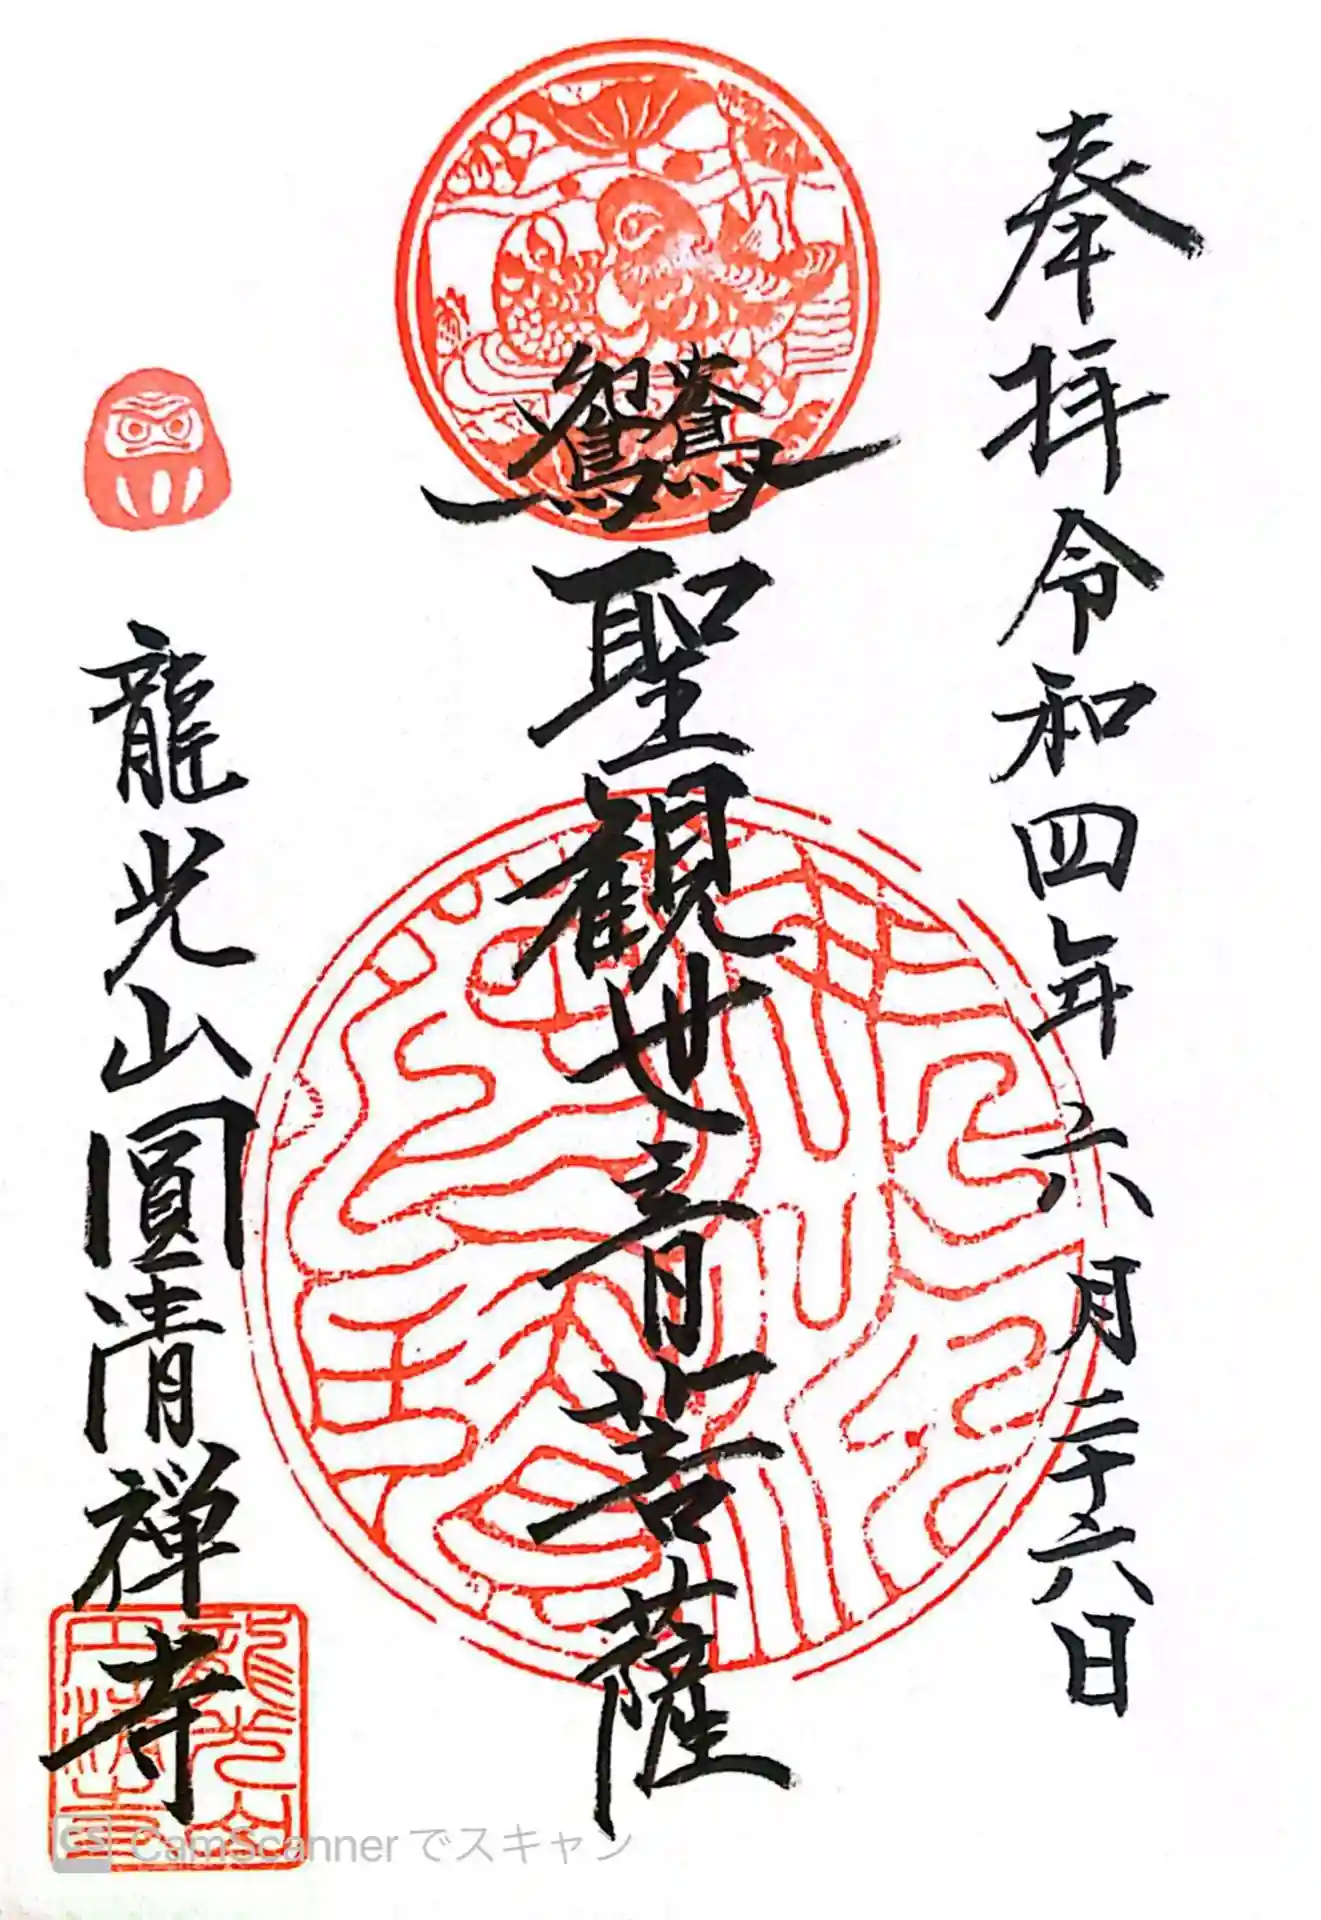 奉拝令和四年六月二十六日
鴛鴦聖観世音菩薩
龍光山圓清禅寺
龍光山
円清寺
CS CamScannerでスキャン